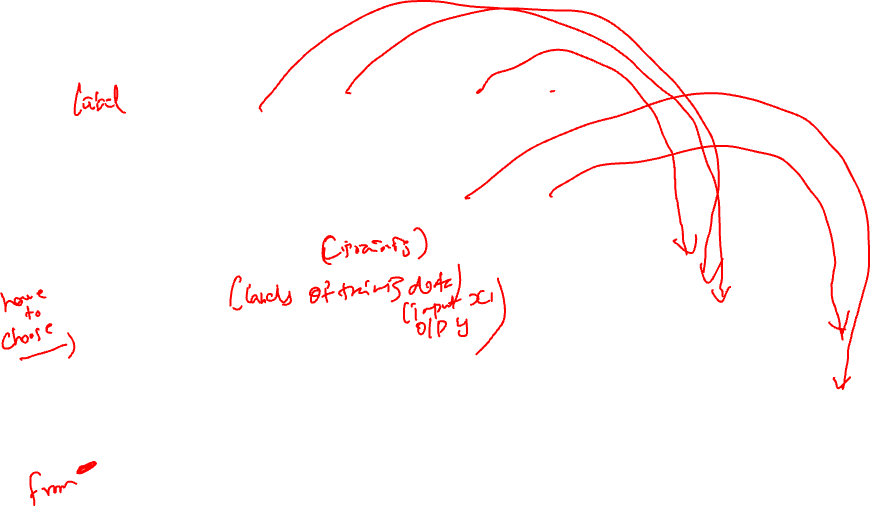 Label
(training)
(labels of training data)
(input x,
O/P y)
have
to
choose
from